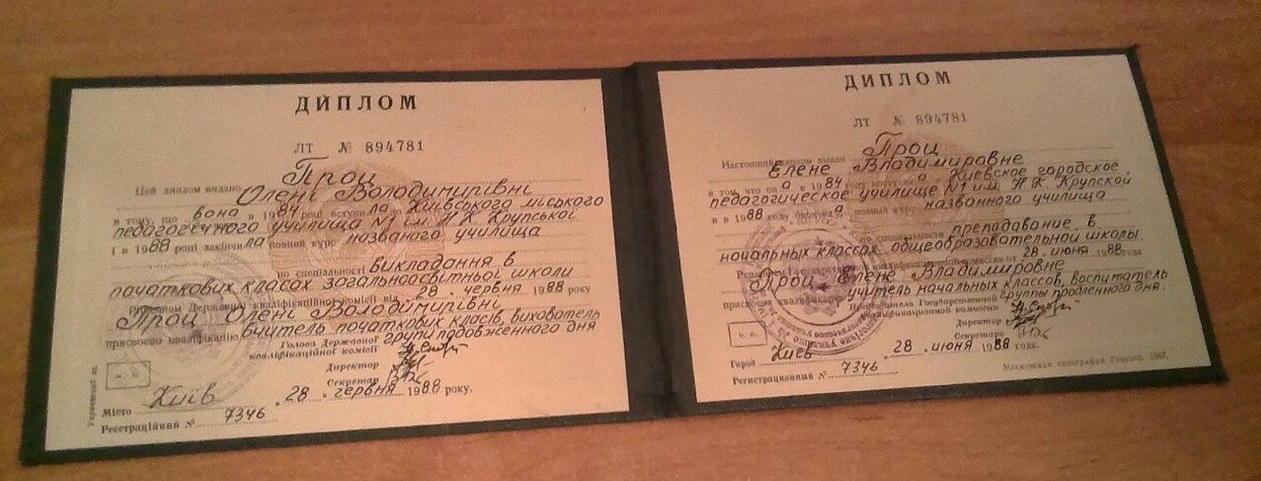 ДИПЛОМ
ЛТ № 894781
Проц
Цей диплом видано Олені Володимирівні
в тому, що вона в 1984 році вступила до Київського міського
педагогічного училища №1 ім. Н.К. Крупської
і в 1988 році закінчила повний курс названого училища
по спеціальності викладання в
початкових класах загальноосвітньої школи
Рішенням Державної кваліфікаційної комісії від 28 червня 1988 року
Проц Олені Володимирівні
присвоєно кваліфікацію вчитель початкових класів, вихователь
групи подовженного дня
Голова Державної
кваліфікаційної комісії
Директор
Секретар
Місто Київ 28 червня 1988 року.
Реєстраційний № 7346
ДИПЛОМ
ЛТ № 894781
Проц
Настоящий диплом выдан Елене Владимировне
в том, что она в 1984 году поступила в Киевское городское
педагогическое училище №1 им. Н.К. Крупской
и в 1988 году окончила полный курс названного училища
по специальности преподавание в
начальных классах общеобразовательной школы.
Решением Государственной квалификационной комиссии от 28 июня 1988 года
Проц Елене Владимировне
присвоена квалификация учитель начальных классов, воспитатель
группы продленного дня.
Председатель Государственной
квалификационной комиссии
Директор
Секретарь
Город Киев 28 июня 1988 года.
Регистрационный № 7346
Московская типография Гознака. 1987.